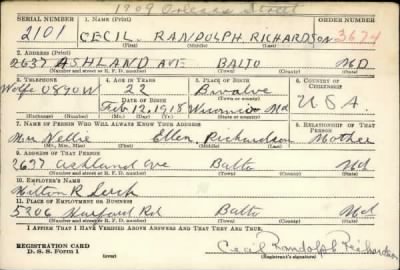 1909 Orleans Street
SERIAL NUMBER 1. NAME (Print) ORDER NUMBER
2101 CECIL RANDOLPH RICHARDSON 3674
(First) (Middle) (Last)
2. ADDRESS (Print)
2637 ASHLAND AVE BALTO MD
(Number and street or R. F. D. number) (Town) (County) (State)
3. TELEPHONE 4. AGE IN YEARS 5. PLACE OF BIRTH 6. COUNTRY OF CITIZENSHIP
22 Bivalve
Wolfe 0890W DATE OF BIRTH (Town or county) U.S.A.
Feb 12, 1918 Wicomico Md
(Exchange) (Number) (Mo.) (Day) (Yr.) (State or country)
7. NAME OF PERSON WHO WILL ALWAYS KNOW YOUR ADDRESS 8. RELATIONSHIP OF THAT PERSON
Mrs Nellie Ellen Richardson Mother
(Mr., Mrs., Miss) (First) (Middle) (Last)
9. ADDRESS OF THAT PERSON
2637 Ashland Ave Balto Md
(Number and street or R. F. D. number) (Town) (County) (State)
10. EMPLOYER'S NAME
Milton R
11. PLACE OF EMPLOYMENT OR BUSINESS
5206 Harford Rd Balto Md
(Number and street or R. F. D. number) (Town) (County) (State)
I AFFIRM THAT I HAVE VERIFIED ABOVE ANSWERS AND THAT THEY ARE TRUE.
REGISTRATION CARD
D. S. S. Form 1 Cecil Randolph Richardson
(Registrant's signature)